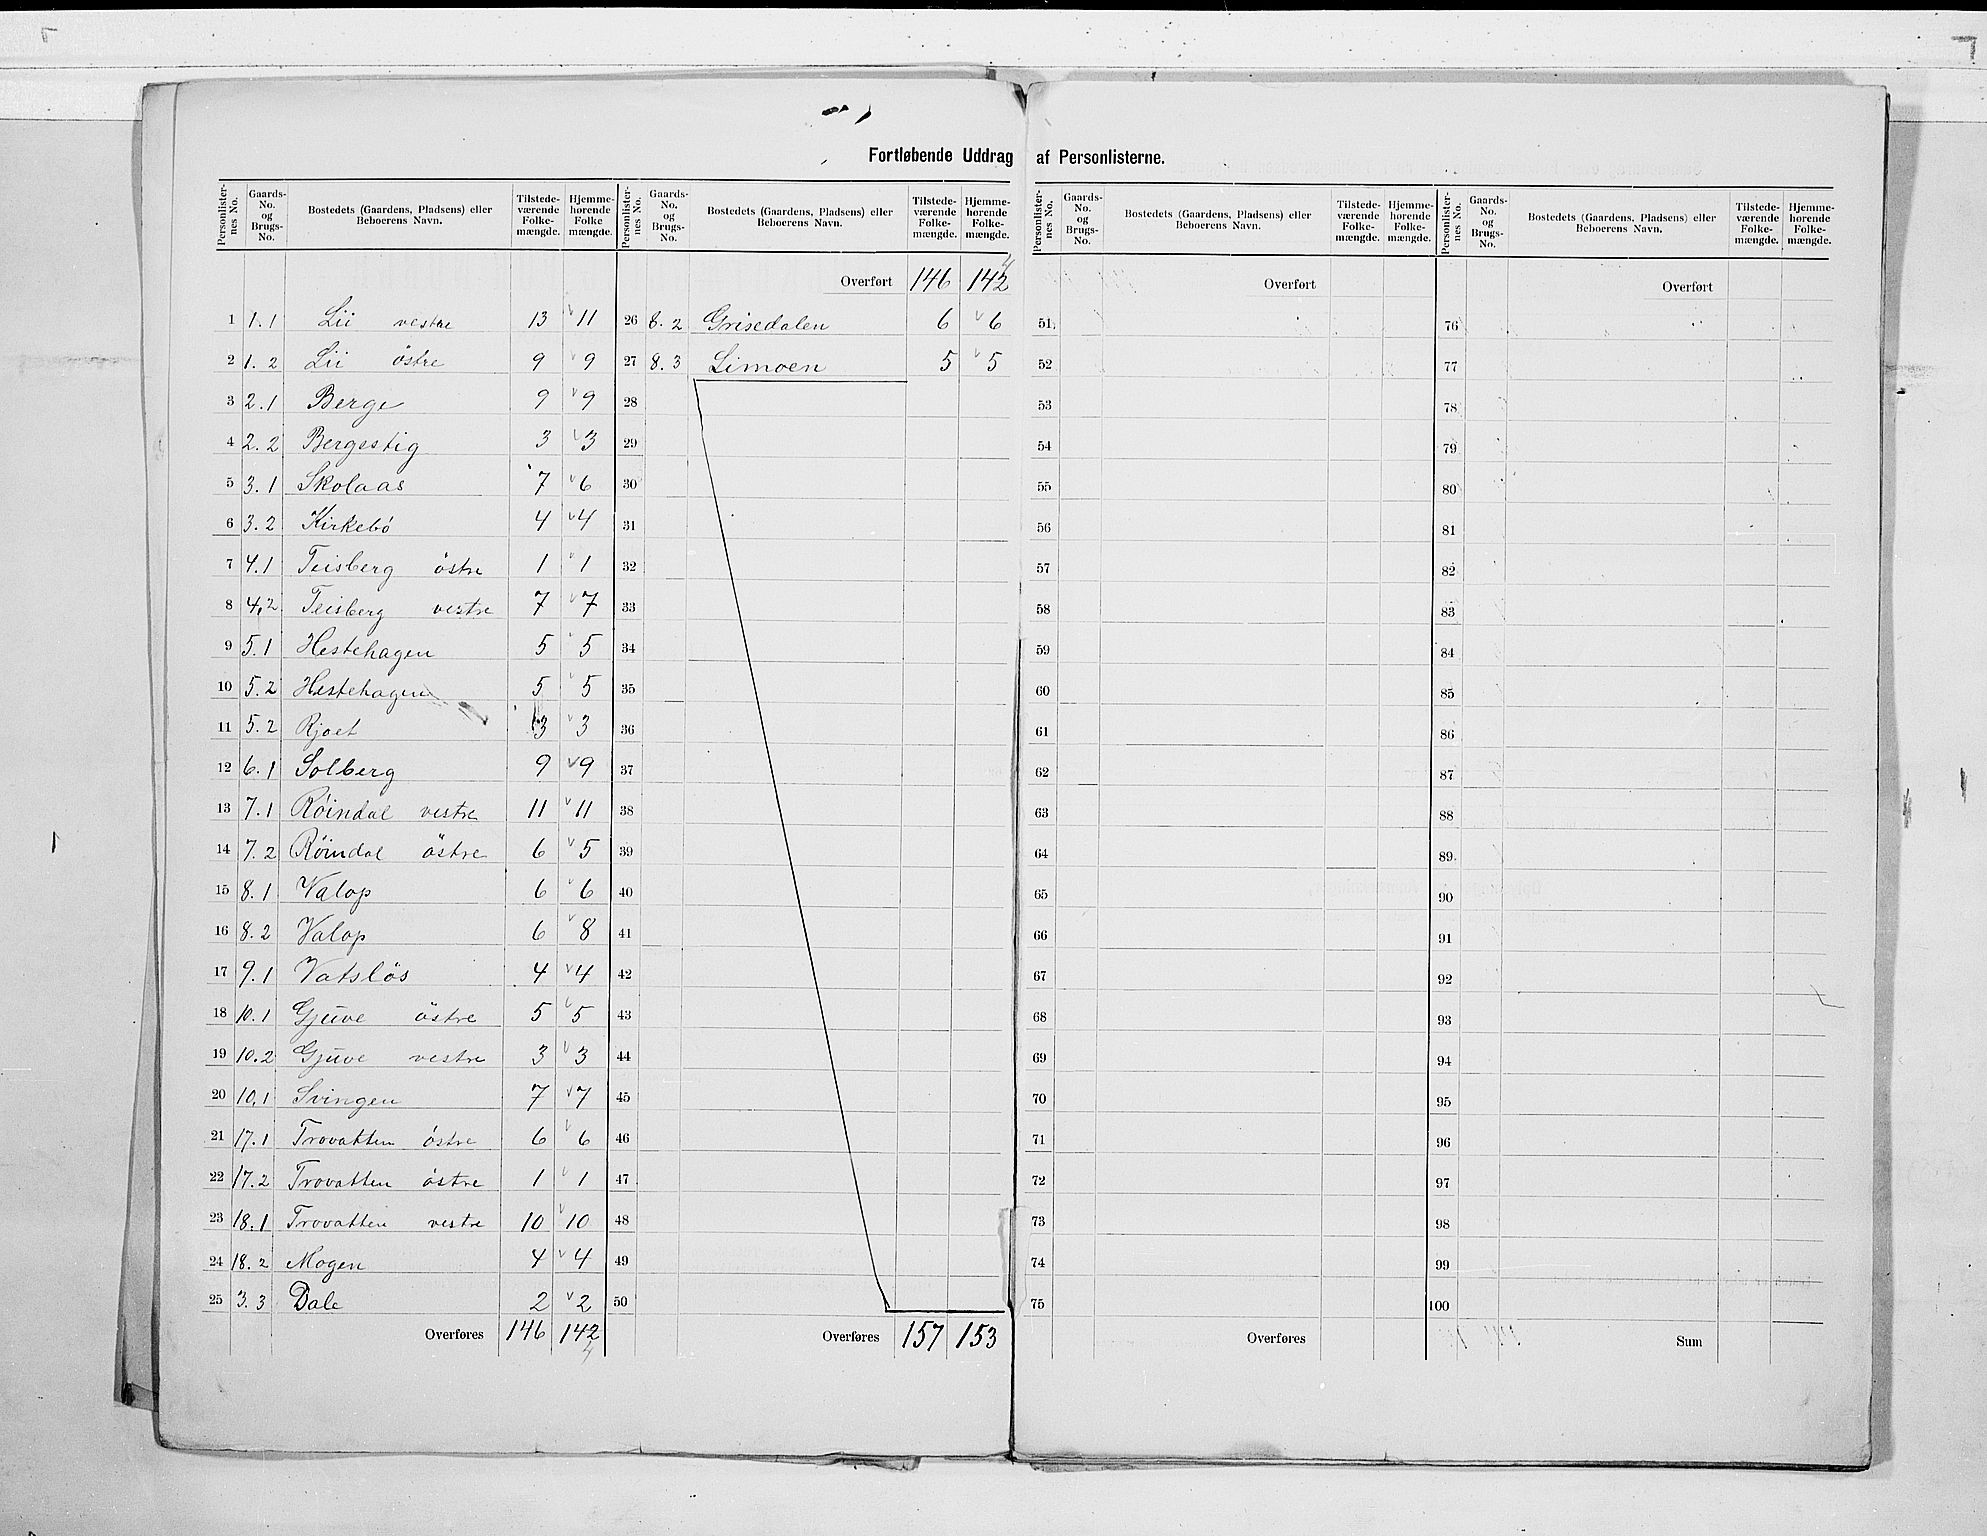 Fortløbende Uddrag af Personlisterne.
Personlister-nes No. | Gaards-No. og Brugs-No. | Bostedets (Gaardens, Pladsens) eller Beboerens Navn. | Tilstede-værende Folke-mængde. | Hjemme-hørende Folke mængde.
1 1.1 Lii vestre 13 11
2 1.2 Lii östre 9 9
3 2.1 Berge 9 9
4 2.2 Bergsstig 3 3
5 3.1 Skolaas 7 6
6 3.2 Kirkebö 4 4
7 4.1 Teisberg östre 1 1
8 4,2 Teisberg vestre 7 7
9 5.1 Hestehagen 5 5
10 5.2 Hestehagen 5 5
11 5.2 Rjoet 3 3
12 6.1 Solberg 9 9
13 7.1 Röindal vestre 11 11
14 7.2 Röindal östre 6 5
15 8.1 Valop 6 6
16 8.2 Valop 6 8
17 9.1 Vatslös 4 4
18 10.1 Gjuve östre 5 5
19 10.2 Gjuve vestre 3 3
20 10,1 Svingen 7 7
21 17.1 Trovatten östre 6 6
22 17.2 Trovatten östre 1 1
23 18.1 Trovatten vestre 10 10
24 18.2 Mogen 4 4
25 3.3 Dale 2 2
Overføres 146 142
4
Personlister-nes No. | Gaards-No. og Brugs-No. | Bostedets (Gaardens, Pladsens) eller Beboerens Navn. | Tilstede-værende Folke-mængde. | Hjemme-hørende Folke-mængde.
4
Overført 146 142
26 8.2 Grisedalen 6 6
27 8.3 Limoen 5 5
28
29
30
31
32
33
34
35
36
37
38
39
40
41
42
43
44
45
46
47
48
49
50
Overføres 157 153
Personlister-nes No. | Gaards-No. og Brugs-No. | Bostedets (Gaardens, Pladsens) eller Beboerens Navn. | Tilstede-værende Folke-mængde. | Hjemme-hørende Folke-mængde.
Overført
51
52
53
54
55
56
57
58
59
60
61
62
63
64
65
66
67
68
69
70
71
72
73
74
75
Overføres
Personlister-nes No. | Gaards-No. og Brugs-No. | Bostedets (Gaardens, Pladsens) eller Beboerens Navn. | Tilstede-værende Folke-mængde. | Hjemme-hørende Folke-mængde.
Overført
76
77
78
79
80
81
82
83
84
85
86
87
88
89
90
91
92
93
94
95
96
97
98
99
100
Sum